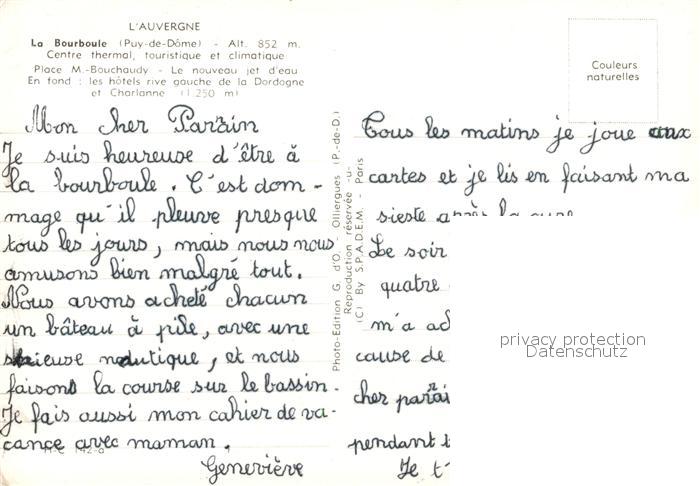 L'AUVERGNE
La Bourboule (Puy-de-Dôme) - Alt. 852 m.
Centre thermal, touristique et climatique
Place M.-Bouchaudy - Le nouveau jet d'eau
En fond : les hôtels rive gauche de la Dordogne
et Charlanne (1.250 m)
Couleurs
naturelles
Mon cher Parrain
Je suis heureuse d'être à
la bourboule. C'est dom-
mage qu'il pleuve presque
tous les jours, mais nous nous
amusons bien malgré tout.
Nous avons acheté chacun
un bâteau à pile, avec une
nautique, et nous
faisons la course sur le bassin.
Je fais aussi mon cahier de va-
cance avec maman.
Geneviève
Photo-Edition G. d'O. - Olliergues (P.-de-D.)
Reproduction réservée -u-
(C) By S.P.A.D.E.M. - Paris
Tous les matins je joue aux
cartes et je lis en faisant ma
sieste après la cure
Le soir
quatre
m'a
cause de
cher
pendant
Je
privacy protection
Datenschutz